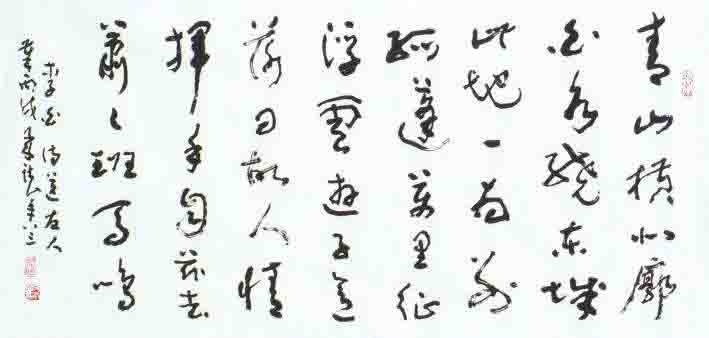 青山横北廓
白水绕东城
此地一为别
孤蓬万里征
浮云游子意
落日故人情
挥手自兹去
萧々班马鸣
李白诗送友人